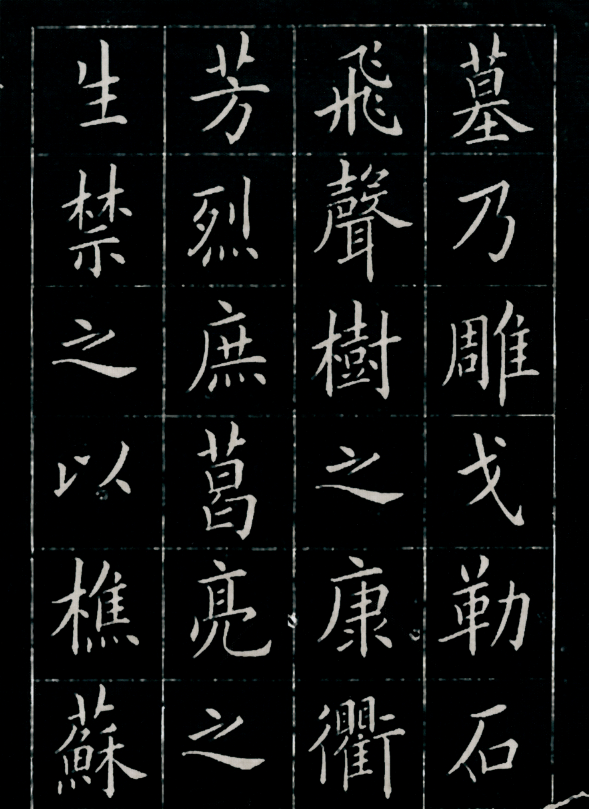 墓乃雕戈勒石
飛聲樹之康衢
芳烈庶葛亮之
生禁之以樵蘇